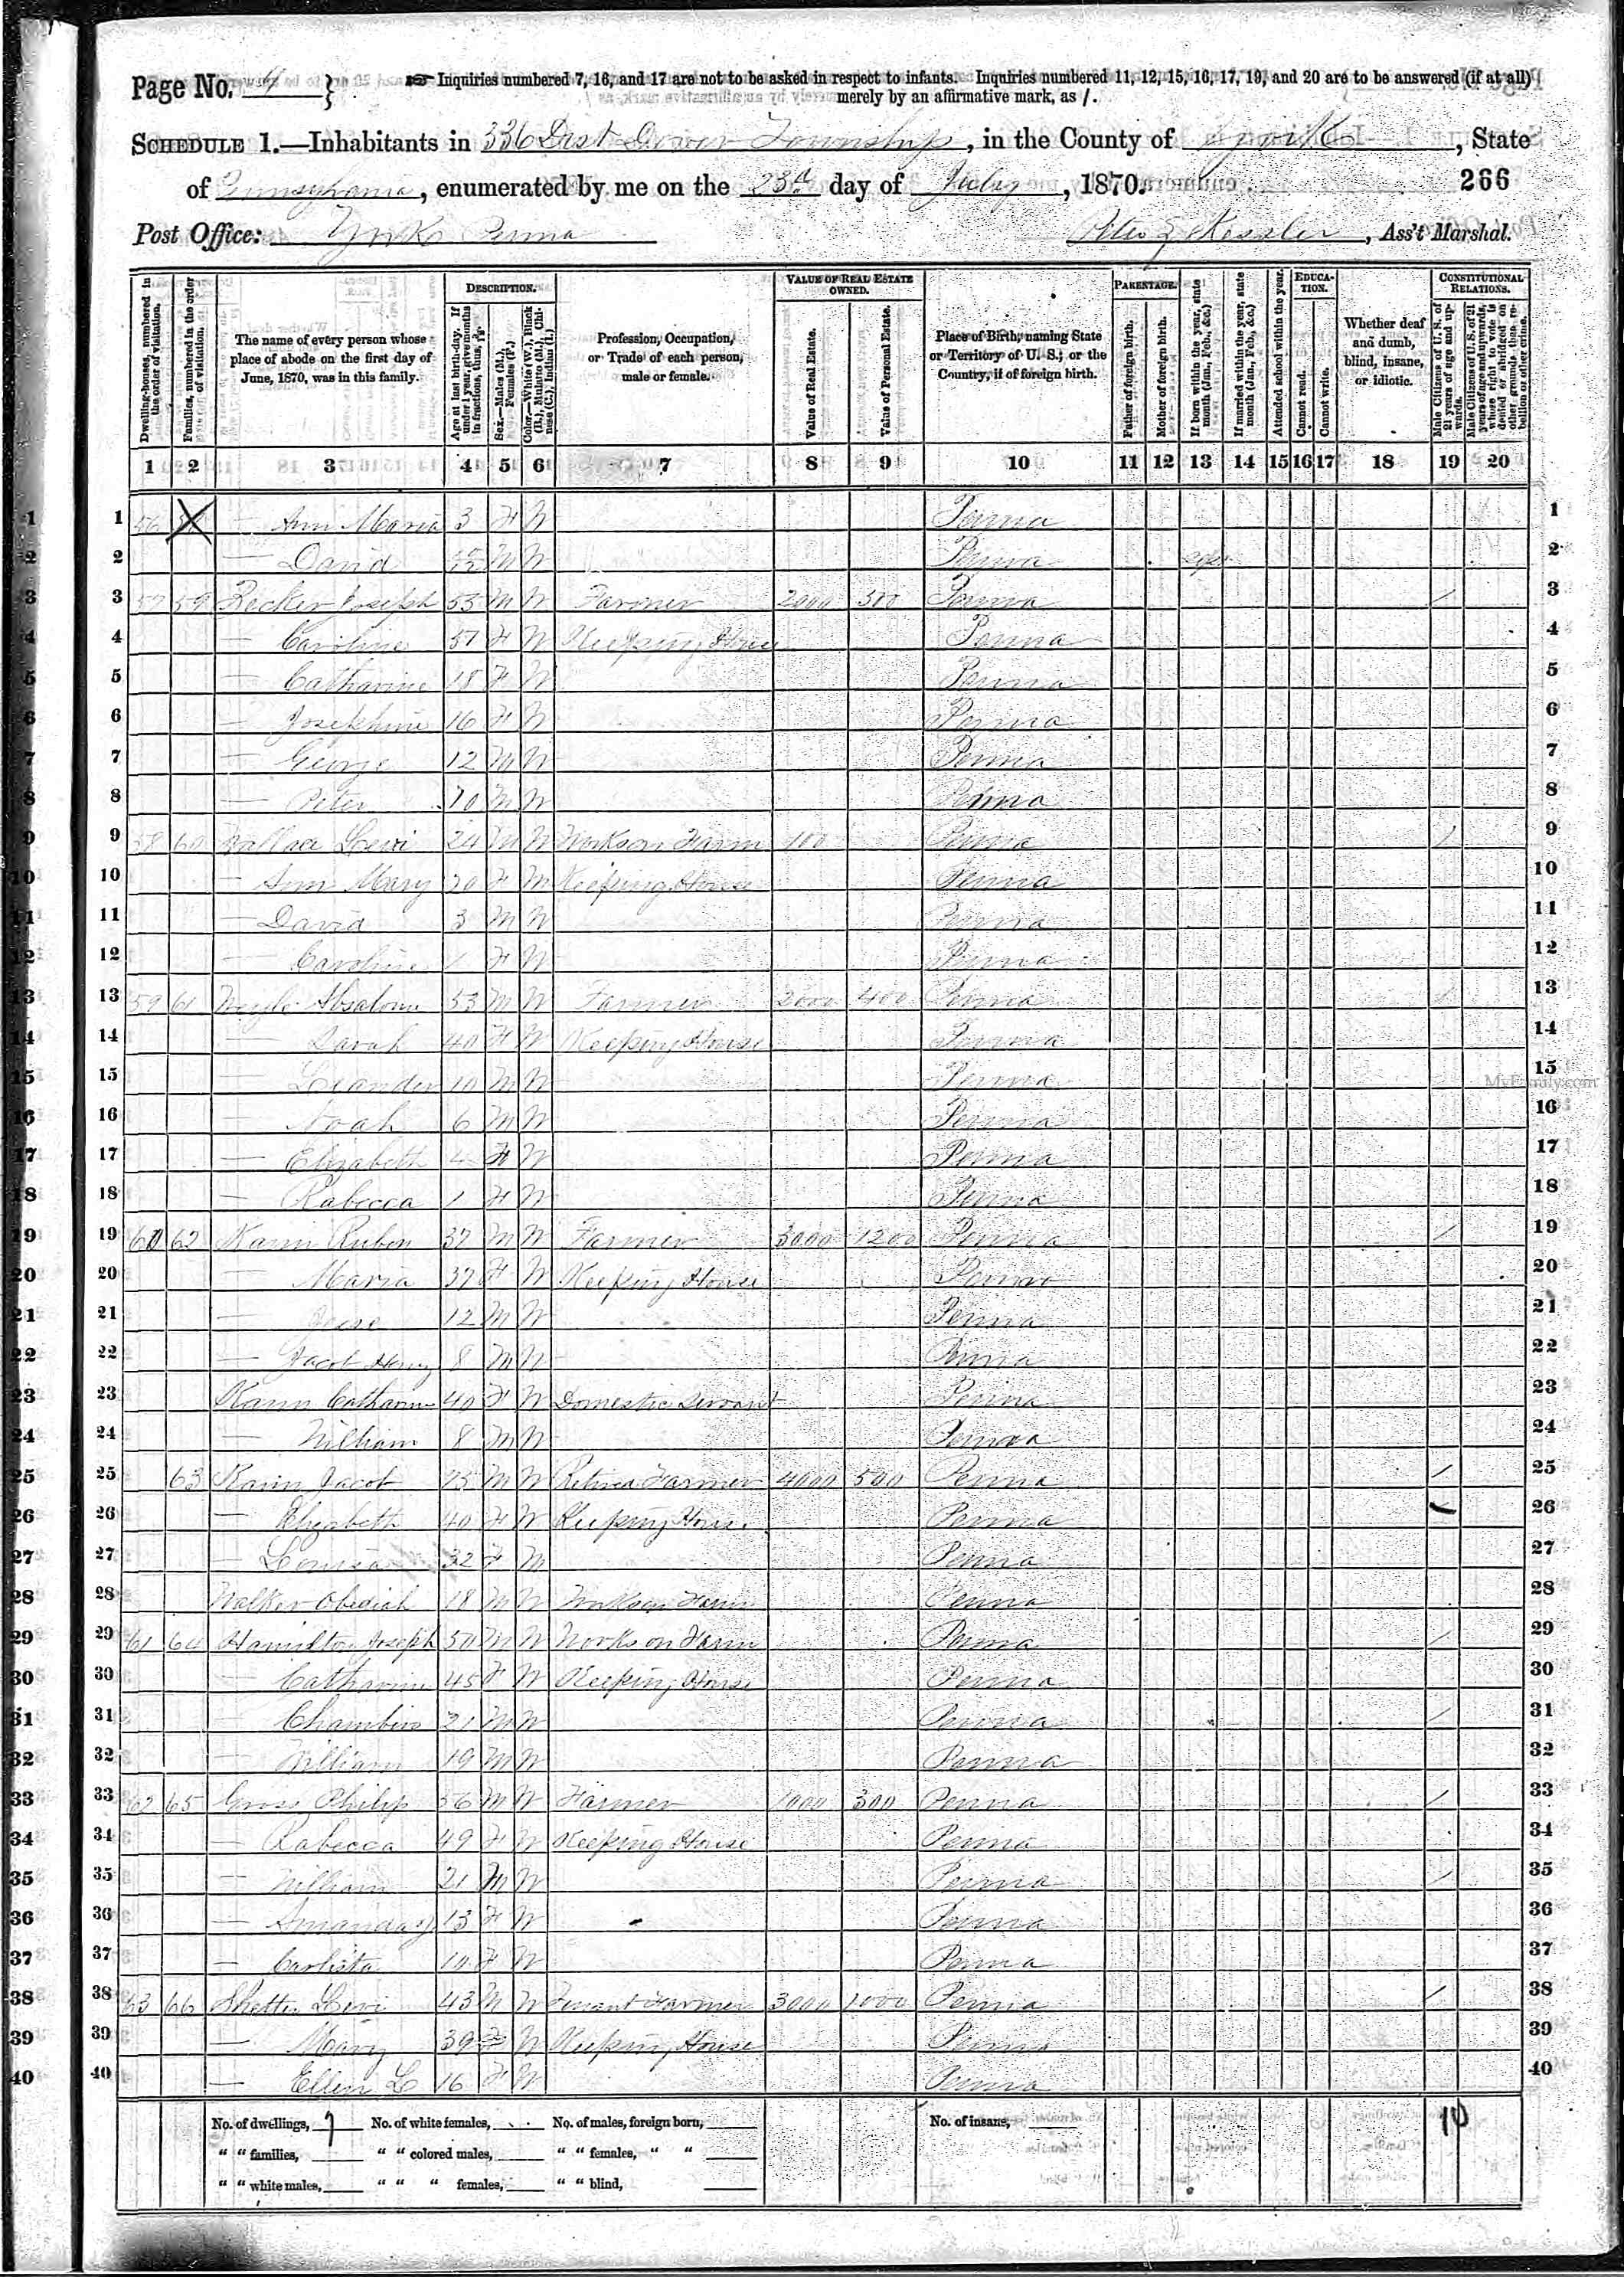 Page No. 9 } ☞ Inquiries numbered 7, 16, and 17 are not to be asked in respect to infants. Inquiries numbered 11, 12, 15, 16, 17, 19, and 20 are to be answered (if at all)
merely by an affirmative mark, as /.
SCHEDULE 1.—Inhabitants in 336 Dist Dover Township, in the County of York, State
of Pennsylvania, enumerated by me on the 23d day of July, 1870. 266
Post Office: York Penna Peter Z Kessler, Ass't Marshal.
Dwelling-houses, numbered in the order of visitation.
Families, numbered in the order of visitation.
The name of every person whose place of abode on the first day of June, 1870, was in this family.
DESCRIPTION.
Age at last birth-day. If under 1 year, give months in fractions, thus, 3/12.
Sex.—Males (M.), Females (F.)
Color.—White (W.), Black (B.), Mulatto (M.), Chinese (C.), Indian (I.)
Profession, Occupation, or Trade of each person, male or female.
VALUE OF REAL ESTATE OWNED.
Value of Real Estate.
Value of Personal Estate.
Place of Birth, naming State or Territory of U. S.; or the Country, if of foreign birth.
PARENTAGE.
Father of foreign birth.
Mother of foreign birth.
If born within the year, state month (Jan., Feb., &c.)
If married within the year, state month (Jan., Feb., &c.)
Attended school within the year.
EDUCATION.
Cannot read.
Cannot write.
Whether deaf and dumb, blind, insane, or idiotic.
CONSTITUTIONAL RELATIONS.
Male Citizens of U. S. of 21 years of age and upwards.
Male Citizens of U. S. of 21 years of age and upwards, whose right to vote is denied or abridged on other grounds than rebellion or other crime.
1 2 3 4 5 6 7 8 9 10 11 12 13 14 15 16 17 18 19 20
1 56 — Ann Maria 3 F W Penna 1
2 — David M W Penna 2
3 57 59 Joseph 55 M W Farmer 2000 500 Penna / 3
4 — Caroline 51 F W Keeping House Penna 4
5 — Catharine 18 F W Penna 5
6 — Josephine 16 F W Penna 6
7 — George 12 M W Penna 7
8 — Peter 10 M W Penna 8
9 58 60 Wallace Levi 24 M W Works on Farm 100 Penna / 9
10 — Ann Mary 20 F W Keeping House Penna 10
11 — David 3 M W Penna 11
12 — Caroline 1 F W Penna 12
13 59 61 Absalom 53 M W Farmer 2000 400 Penna / 13
14 — Sarah 40 F W Keeping House Penna 14
15 — Leander 10 M W Penna 15
MyFamily.com
16 — Noah 6 M W Penna 16
17 — Elizabeth 4 F W Penna 17
18 — Rabecca 1 F W Penna 18
19 60 62 Kann Ruben 37 M W Farmer 3000 1200 Penna / 19
20 — Maria 37 F W Keeping House Penna 20
21 — Jesse 12 M W Penna 21
22 — Jacob Henry 8 M W Penna 22
23 Kann Catharine 40 F W Domestic Servant Penna 23
24 — William 8 M W Penna 24
25 63 Kann Jacob 75 M W Retired Farmer 4000 500 Penna / 25
26 — Elizabeth 40 F W Keeping House Penna 26
27 — Louisa 32 F W Penna 27
28 Walker Obediah 18 M W Works on Farm Penna 28
29 61 64 Hamilton Joseph 50 M W Works on Farm Penna / 29
30 — Catharine 45 F W Keeping House Penna 30
31 — Chambers 21 M W Penna / 31
32 — William 19 M W Penna 32
33 62 65 Gross Philip 56 M W Farmer 1000 300 Penna / 33
34 — Rabecca 49 F W Keeping House Penna 34
35 — William 21 M W Penna / 35
36 — Amanda J 13 F W Penna 36
37 — 10 F W Penna 37
38 63 66 Shetter Levi 43 M W Tenant Farmer 3000 1000 Penna / 38
39 — Mary 39 F W Keeping House Penna 39
40 — Ellen L 16 F W Penna 40
No. of dwellings, 7 No. of white females, No. of males, foreign born, No. of insane, 10
" " families, " " colored males, " " females, " "
" " white males, " " " females, " " blind,